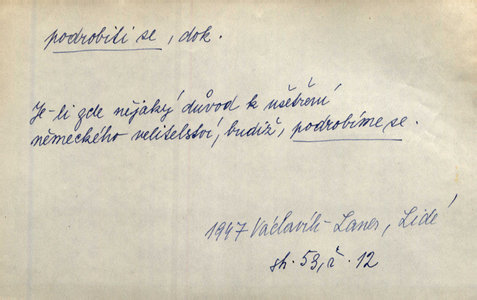 podrobiti se, dok.
Je-li zde nějaký důvod k ušetření
německého velitelství, budiž, podrobíme se.
1947 Václavík-Laner, Lidé
str. 53, č. 12